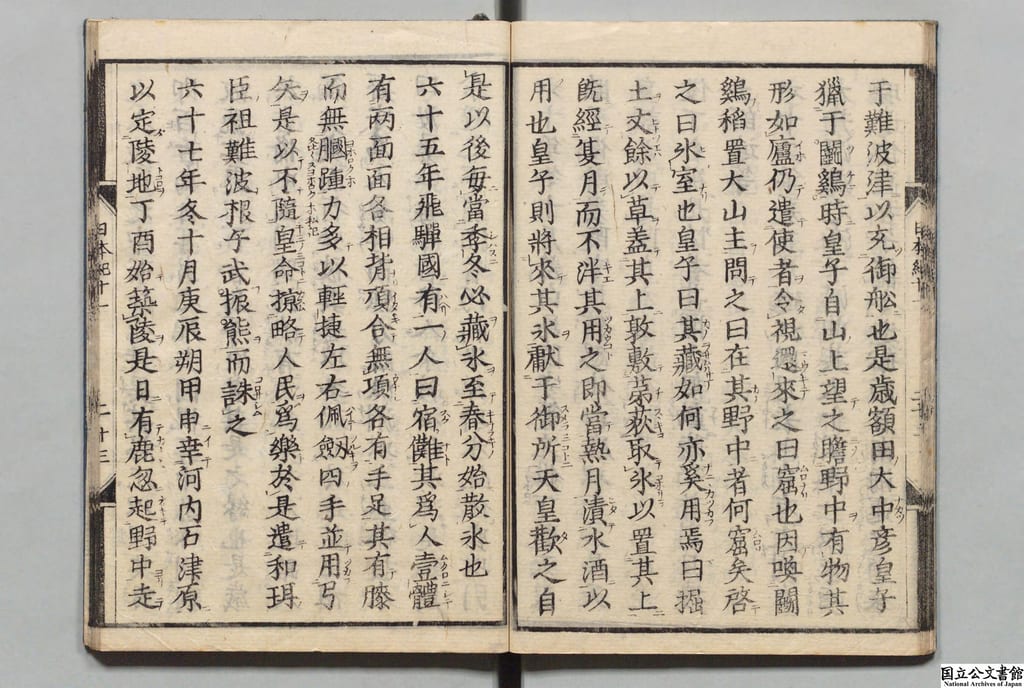 于難波津以充御舩也是歳額田大中彦皇子
獵于闘鷄時皇子自山上望之瞻野中有物其
形如廬仍遣使者令視還來之曰窟也因喚闘
鷄稲置大山主問之曰在其野中者何窟矣啓
之曰氷室也皇子曰其藏如何亦奚用焉曰掘
土丈餘以草盖其上敦敷茅荻取氷以置其上
旣經夏月而不泮其用之即當熱月漬水酒以
用也皇子則將來其氷獻于御所天皇歡之自
是以後毎當季冬必藏氷至春分始散氷也
六十五年飛騨國有一人曰宿儺其爲人壹體
有两面面各相背頂合無項各有手足其有膝
而無膕踵力多以輕捷左右佩劔四手並用弓
矢是以不隨皇命掠略人民爲樂於是遣和珥
臣祖難波根子武振熊而誅之
六十七年冬十月庚辰朔甲申幸河内石津原
以定陵地丁酉始築陵是日有鹿忽起野中走
日本紀十一
二十三
国立公文書館
National Archives of Japan